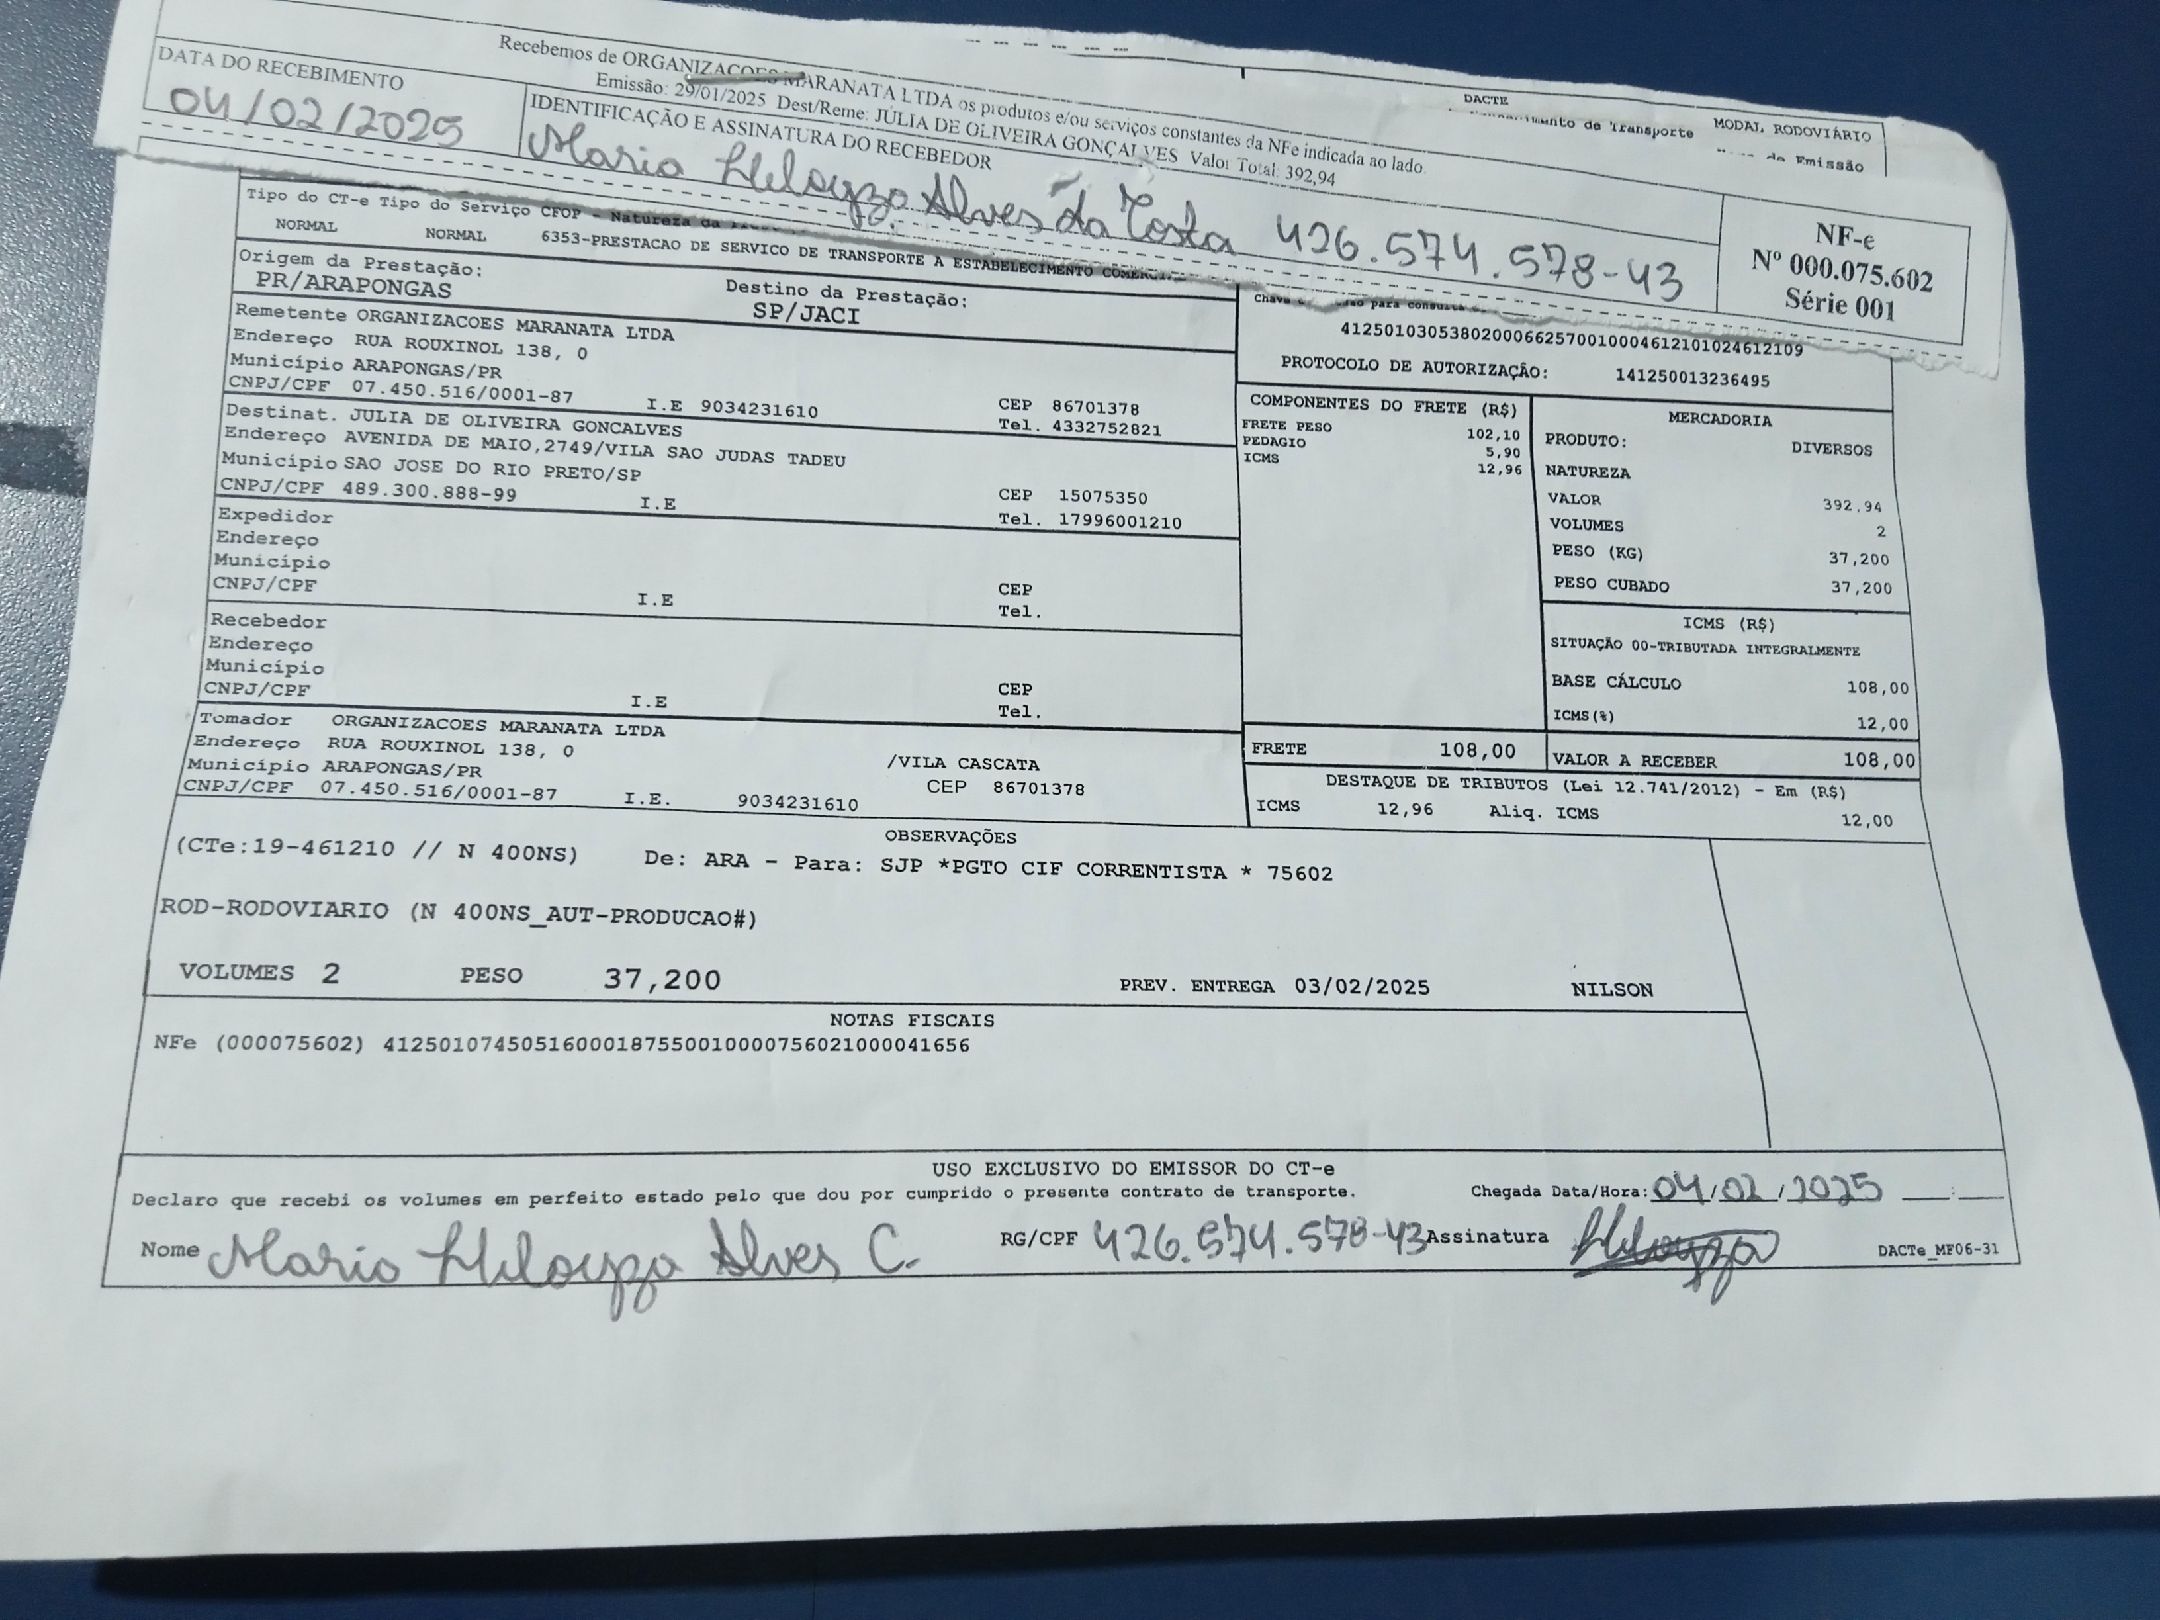 Recebemos de ORGANIZACOES MARANATA LTDA os produtos e/ou serviços constantes da NFe indicada ao lado.
Emissão: 29/01/2025 Dest/Reme: JÚLIA DE OLIVEIRA GONÇALVES Valor Total: 392,94
DATA DO RECEBIMENTO
04/02/2025
IDENTIFICAÇÃO E ASSINATURA DO RECEBEDOR
Maria Heloyza Alves da Costa 426.574.578-43
NF-e
Nº 000.075.602
Série 001
DACTE
de Transporte
MODAL RODOVIÁRIO
Emissão
Tipo do CT-e Tipo do Serviço CFOP - Natureza da
NORMAL NORMAL 6353-PRESTACAO DE SERVICO DE TRANSPORTE A ESTABELECIMENTO
Origem da Prestação: Destino da Prestação:
PR/ARAPONGAS SP/JACI
Chave para
41250103053802000662570010004612101024612109
PROTOCOLO DE AUTORIZAÇÃO: 141250013236495
Remetente ORGANIZACOES MARANATA LTDA
Endereço RUA ROUXINOL 138, 0
Município ARAPONGAS/PR CEP 86701378
CNPJ/CPF 07.450.516/0001-87 I.E 9034231610 Tel. 4332752821
Destinat. JULIA DE OLIVEIRA GONCALVES
Endereço AVENIDA DE MAIO,2749/VILA SAO JUDAS TADEU
Município SAO JOSE DO RIO PRETO/SP CEP 15075350
CNPJ/CPF 489.300.888-99 I.E Tel. 17996001210
Expedidor
Endereço
Município CEP
CNPJ/CPF I.E Tel.
Recebedor
Endereço
Município CEP
CNPJ/CPF I.E Tel.
Tomador ORGANIZACOES MARANATA LTDA
Endereço RUA ROUXINOL 138, 0 /VILA CASCATA
Município ARAPONGAS/PR CEP 86701378
CNPJ/CPF 07.450.516/0001-87 I.E. 9034231610
COMPONENTES DO FRETE (R$)
FRETE PESO 102,10
PEDAGIO 5,90
ICMS 12,96
MERCADORIA
PRODUTO: DIVERSOS
NATUREZA
VALOR 392,94
VOLUMES 2
PESO (KG) 37,200
PESO CUBADO 37,200
ICMS (R$)
SITUAÇÃO 00-TRIBUTADA INTEGRALMENTE
BASE CÁLCULO 108,00
ICMS(%) 12,00
FRETE 108,00 VALOR A RECEBER 108,00
DESTAQUE DE TRIBUTOS (Lei 12.741/2012) - Em (R$)
ICMS 12,96 Aliq. ICMS 12,00
OBSERVAÇÕES
(CTe:19-461210 // N 400NS) De: ARA - Para: SJP *PGTO CIF CORRENTISTA * 75602
ROD-RODOVIARIO (N 400NS_AUT-PRODUCAO#)
VOLUMES 2 PESO 37,200 PREV. ENTREGA 03/02/2025 NILSON
NOTAS FISCAIS
NFe (000075602) 41250107450516000187550010000756021000041656
USO EXCLUSIVO DO EMISSOR DO CT-e
Declaro que recebi os volumes em perfeito estado pelo que dou por cumprido o presente contrato de transporte. Chegada Data/Hora: 04/02/2025 __:__
Nome Maria Heloyza Alves C. RG/CPF 426.574.578-43 Assinatura Heloyza DACTe_MF06-31